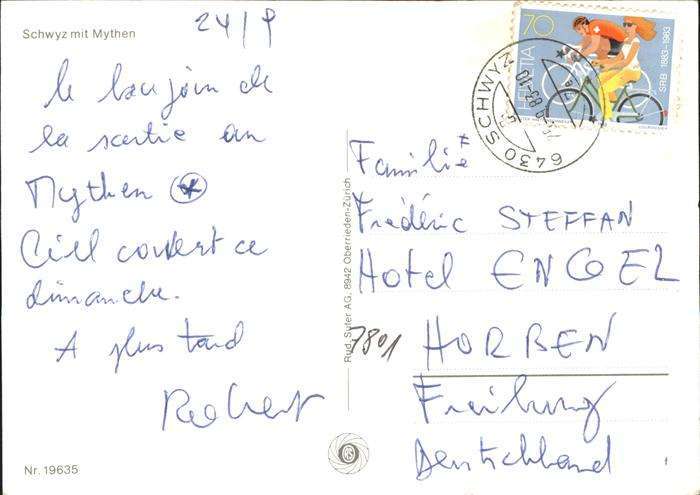 Schwyz mit Mythen
24/9
le bonjour de
la sortie au
Mythen
Ciel couvert ce
dimanche.
A plus tard
Robert
Nr. 19635
Rud. Suter AG, 8942 Oberrieden-Zürich
70
HELVETIA
SRB 1883-1983
6430 SCHWYZ
Familie
Frédéric STEFFAN
Hotel ENGEL
7801 HORBEN
Freiburg
Deutschland